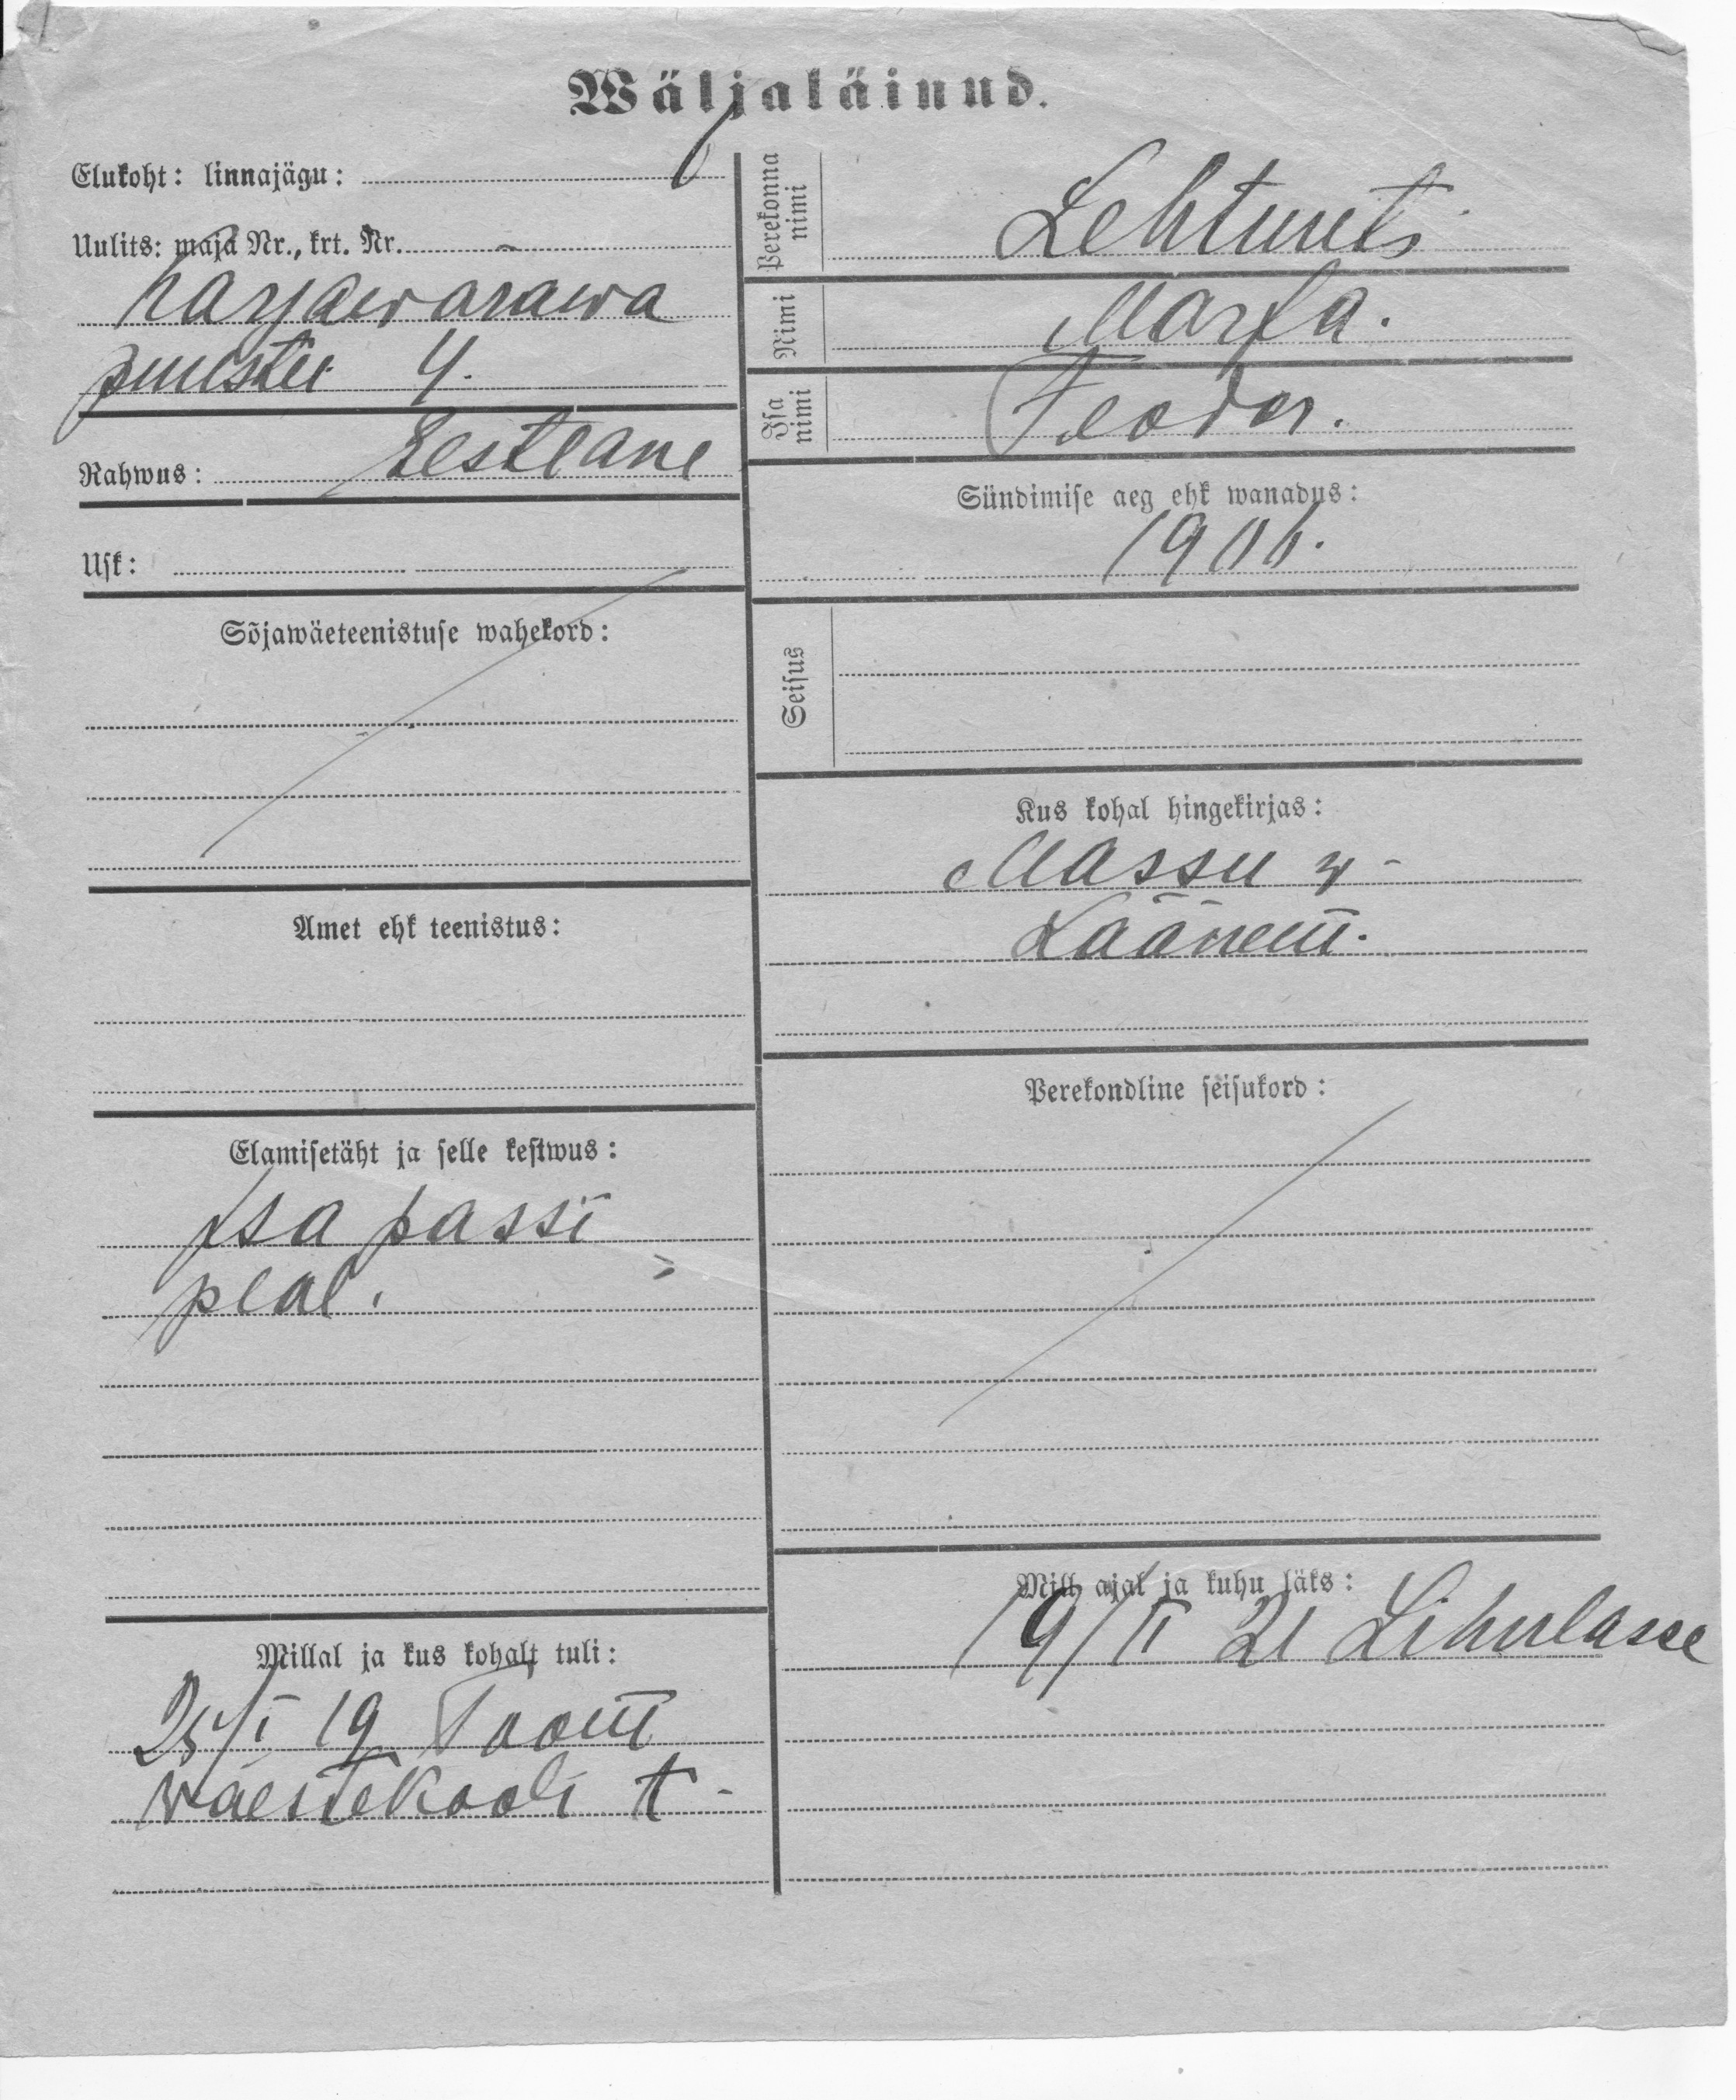 Wäljaläinud.
Elukoht: linnajägu:
Uulits: maja Nr., krt. Nr.
Harjawärawa
puiestee 4.
Rahwus: Eestlane
Usk:
Sõjawäeteenistuse wahekord:
Amet ehk teenistus:
Elamisetäht ja selle kestwus:
Isa passi
peal.
Millal ja kus kohalt tuli:
25/I 19 Toom
waestekooli t-
Perekonna nimi
Nimi Marfa.
Isa nimi Feodor.
Sündimise aeg ehk wanadus:
1906.
Seisus
Kus kohal hingekirjas:
Massu w-
Läänem.
Perekondline seisukord:
Mill ajal ja kuhu läks:
19/II 21 Lihulasse